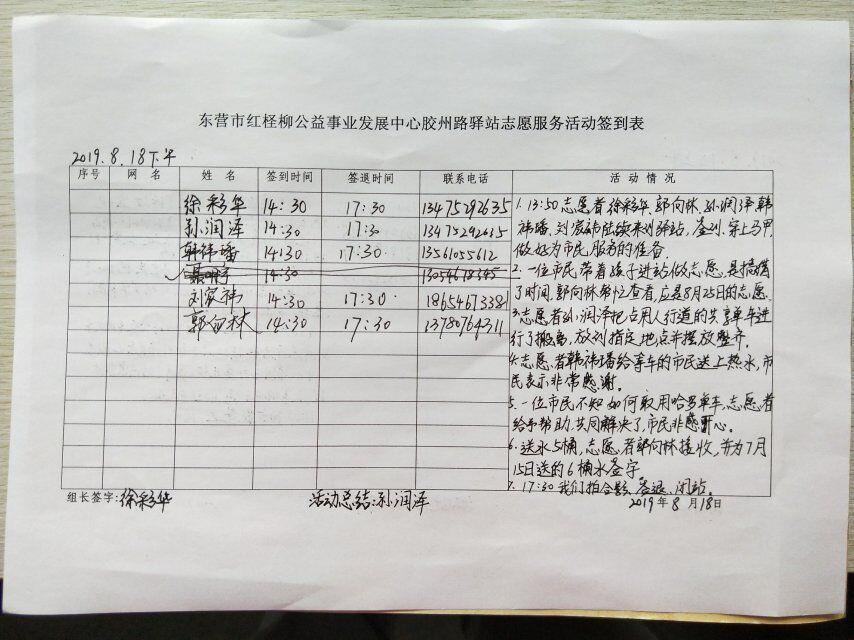 东营市红柽柳公益事业发展中心胶州路驿站志愿服务活动签到表
2019.8.18下午
序号 网名 姓名 签到时间 签退时间 联系电话 活动情况
徐彩华 14:30 17:30 13475292635
孙润泽 14:30 17:30 13475292615
韩祎璠 14:30 17:30. 13561055612
14:30 13054678345
刘家祎 14:30 17:30. 18654673381
郭向林 14:30 17:30 13780764311
1. 13:50志愿者徐彩华、郭向林、孙润泽、韩
祎璠、刘家祎陆续来到驿站,签到、穿上马甲,
做好为市民服务的准备.
2.一位市民带着孩子进站做志愿,是搞错
了时间,郭向林帮忙查看,应是8月25日的志愿.
3.志愿者孙润泽把占用人行道的共享单车进
行了搬离,放到指定地点并摆放整齐.
4.志愿者韩祎璠给等车的市民送上热水,市
民表示非常感谢。
5.一位市民不知如何取用哈罗单车,志愿者
给予帮助,共同解决了,市民非感开心。
6.送水5桶,志愿者郭向林接收,并为7月
15日送的6桶水签字
7. 17:30我们拍合影、签退、闭站。
组长签字:徐彩华 活动总结:孙润泽 2019年8月18日